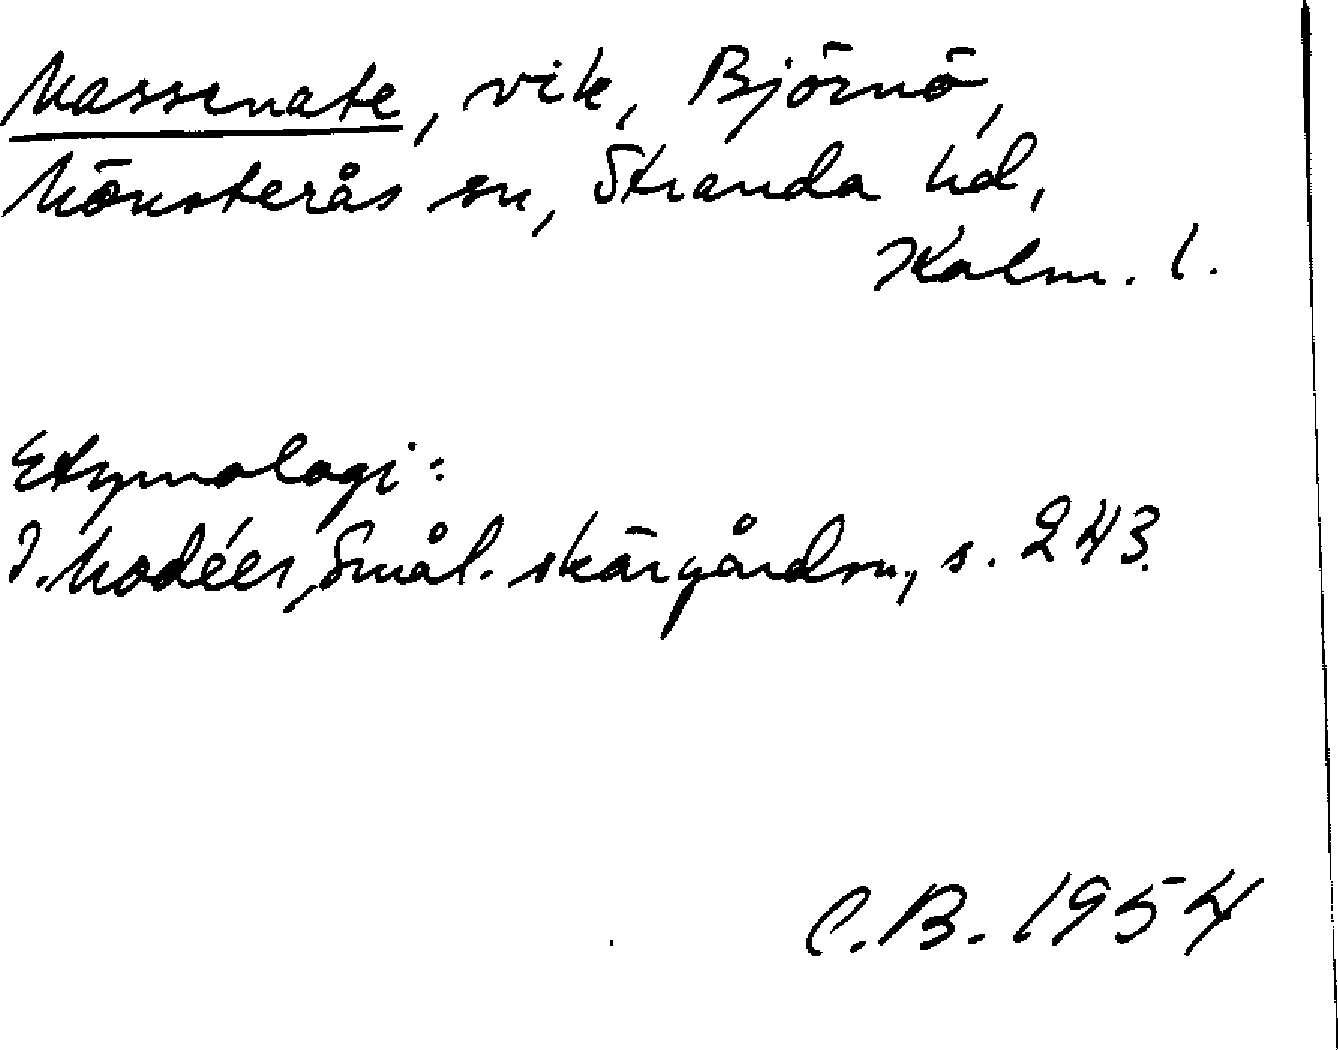 Massenate, vik, Björnö,
Mönsterås sn, Stranda hd,
Kalm. l.
Etymologi:
I. Modéer, Smål. skärgårdsn., s. 243.
C.B. 1954